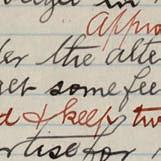 in
appro
the alte
get some fee
d & keep tw
ertise for